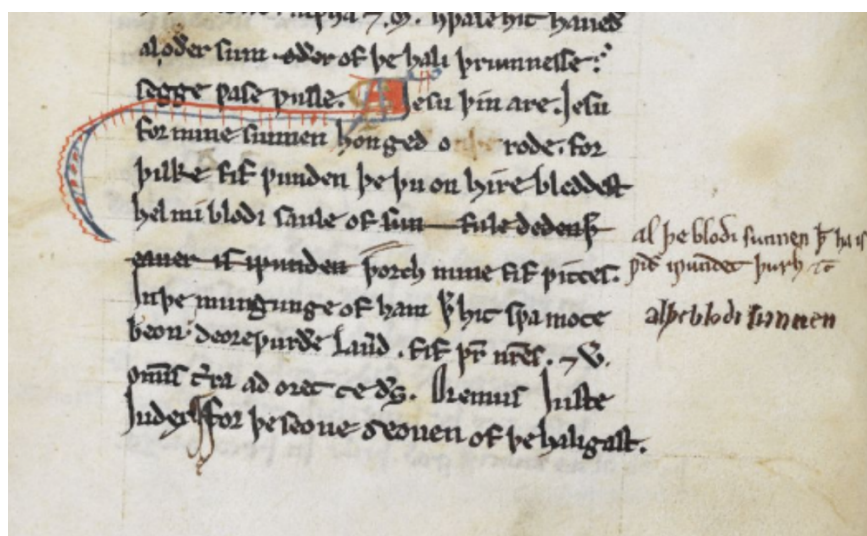 alpha ⁊ ω. hƿase hit haueð
al oðer sum oðer of þe hali þrumnesse:
segge ƿase ƿulle. A Iesu þin are. Iesu
for mine sunnen honged o þe rode. for
þilke fif ƿunden þe þu on hire bleddest
hel mi blodi saule of sun fule dedens ꝥ
eauer is iƿunden þorch mine fif ƿittes.
In þe mungunge of ham ꝥ hit sƿa mote
beon deoreƿurðe Lauð. fif pr̄ nr̄es. ⁊ v̄.
om̄is t̄ra ad oret te ds̄. Oremus Iuste
Iudex ffor þe seoue geouen of þe haligast.
al þe blodi sunnen ꝥ ha is
ƿið iƿundet þurh ⁊c̄
al þe blodi sunnen